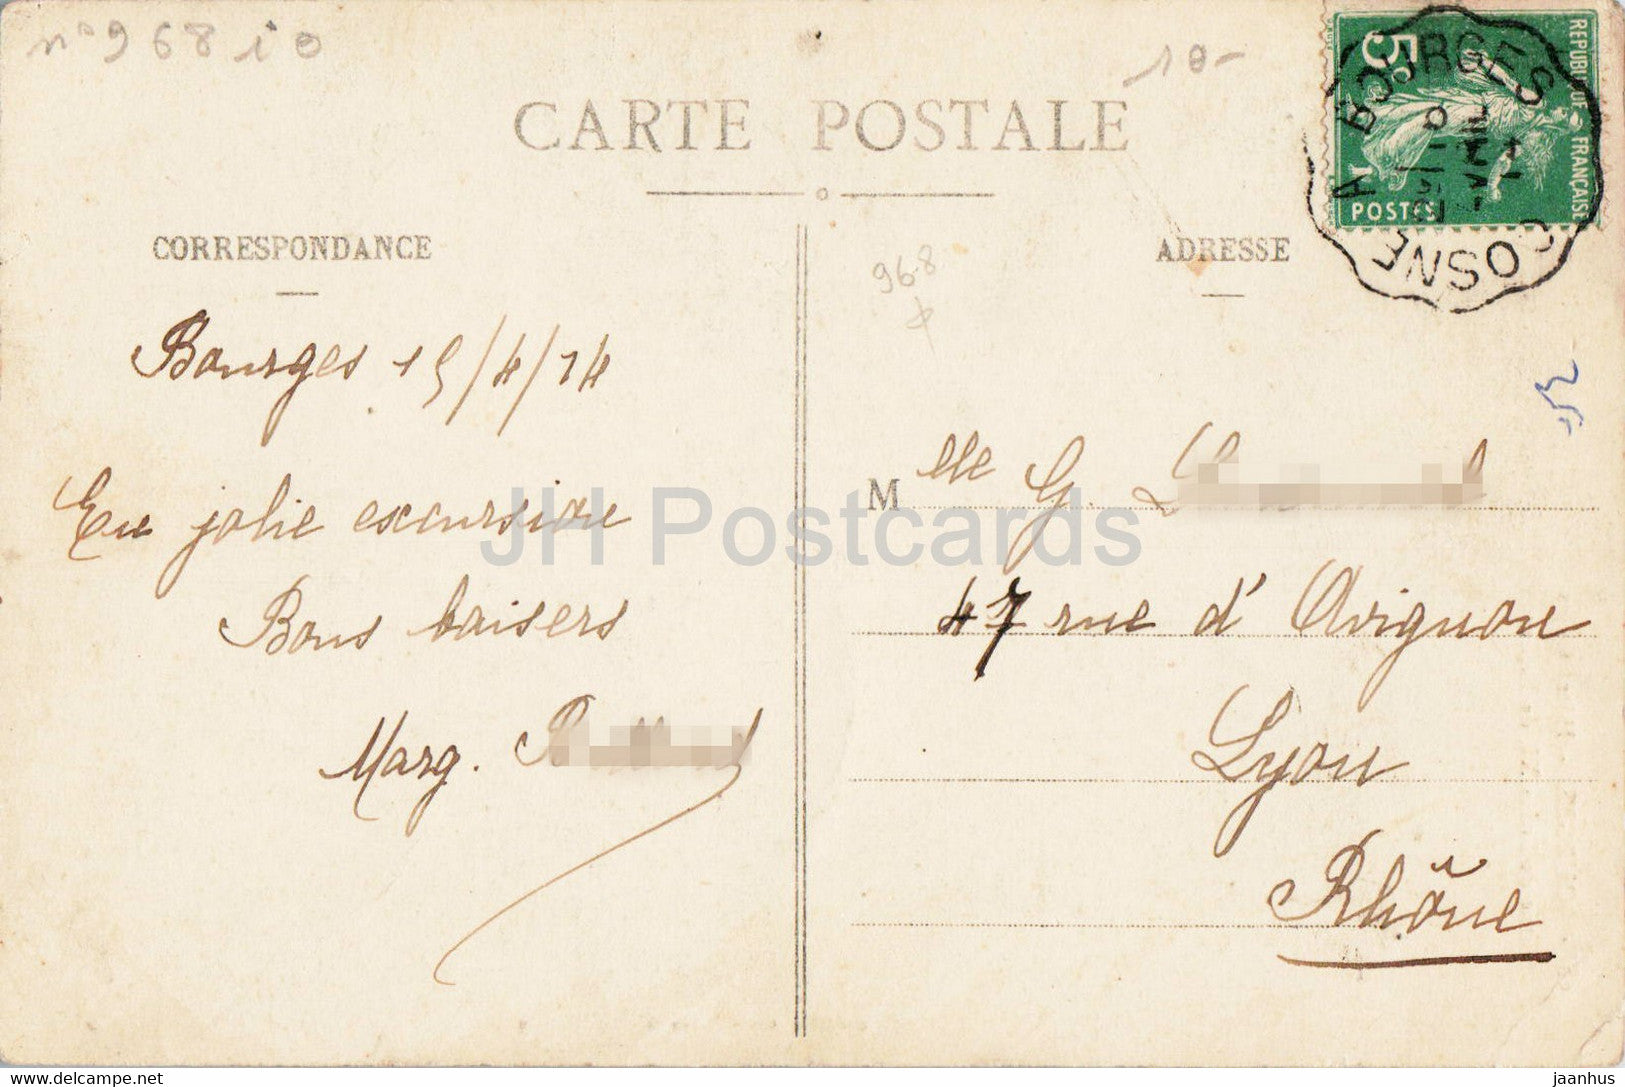 n° 968 i 0
10-
CARTE POSTALE
CORRESPONDANCE
ADRESSE
5c
REPUBLIQUE FRANCAISE
POSTES
COSNE A BOURGES
968
Bourges 15/4/14
En jolie excursion
Bons baisers
Marg.
JH Postcards
M elle G.
47 rue d'Avignon
Lyon
Rhône
delcampe.net
jaanhus